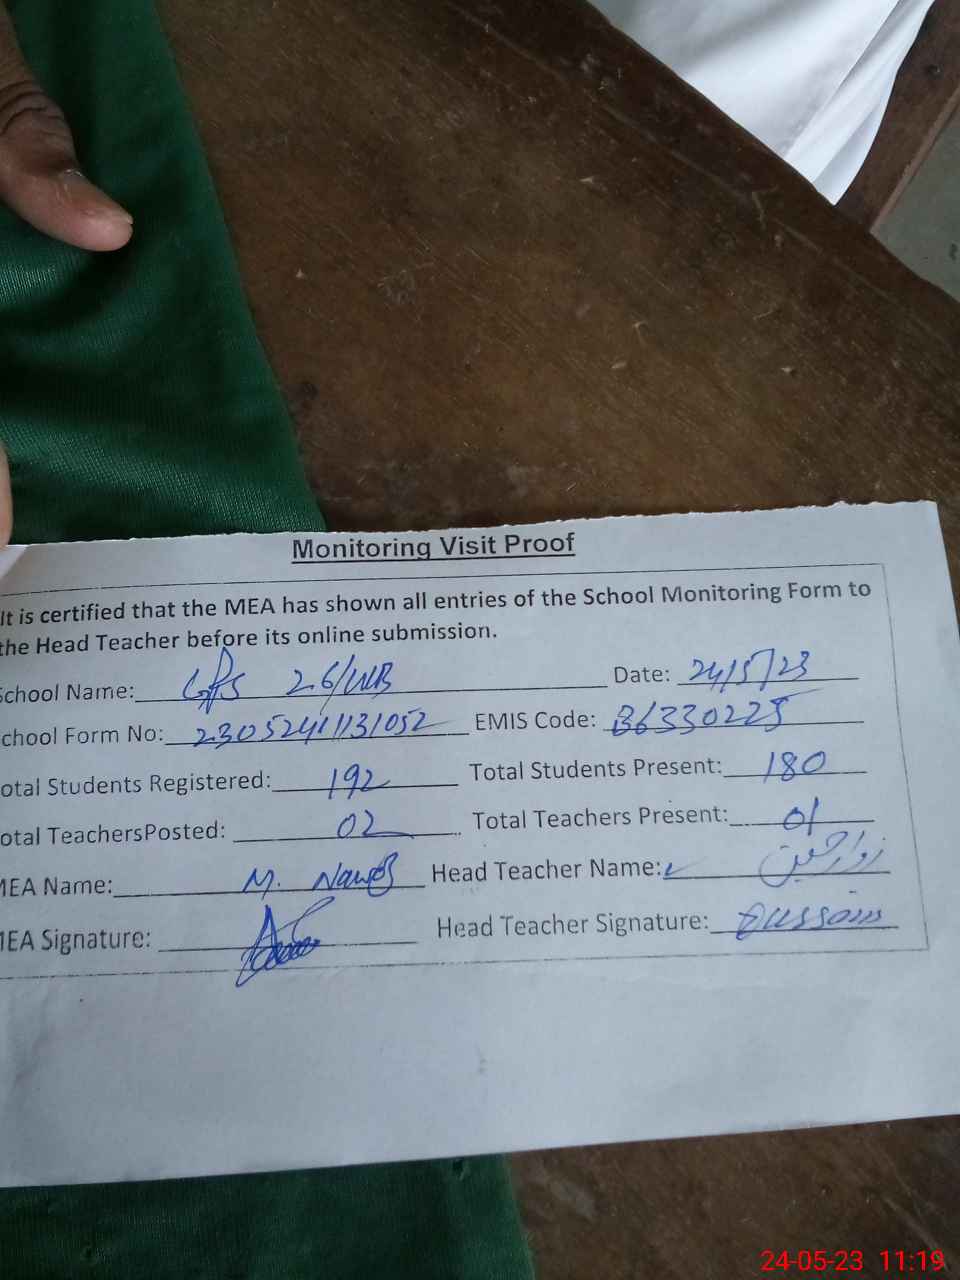 Monitoring Visit Proof
It is certified that the MEA has shown all entries of the School Monitoring Form to
the Head Teacher before its online submission.
School Name: GPS 26/WB Date: 24/5/23
chool Form No: 23052411131052 EMIS Code: 36330225
otal Students Registered: 192 Total Students Present: 180
otal TeachersPosted: 02 Total Teachers Present: 01
MEA Name: M. Head Teacher Name: زوار حسین
MEA Signature: Head Teacher Signature:
24-05-23 11:19